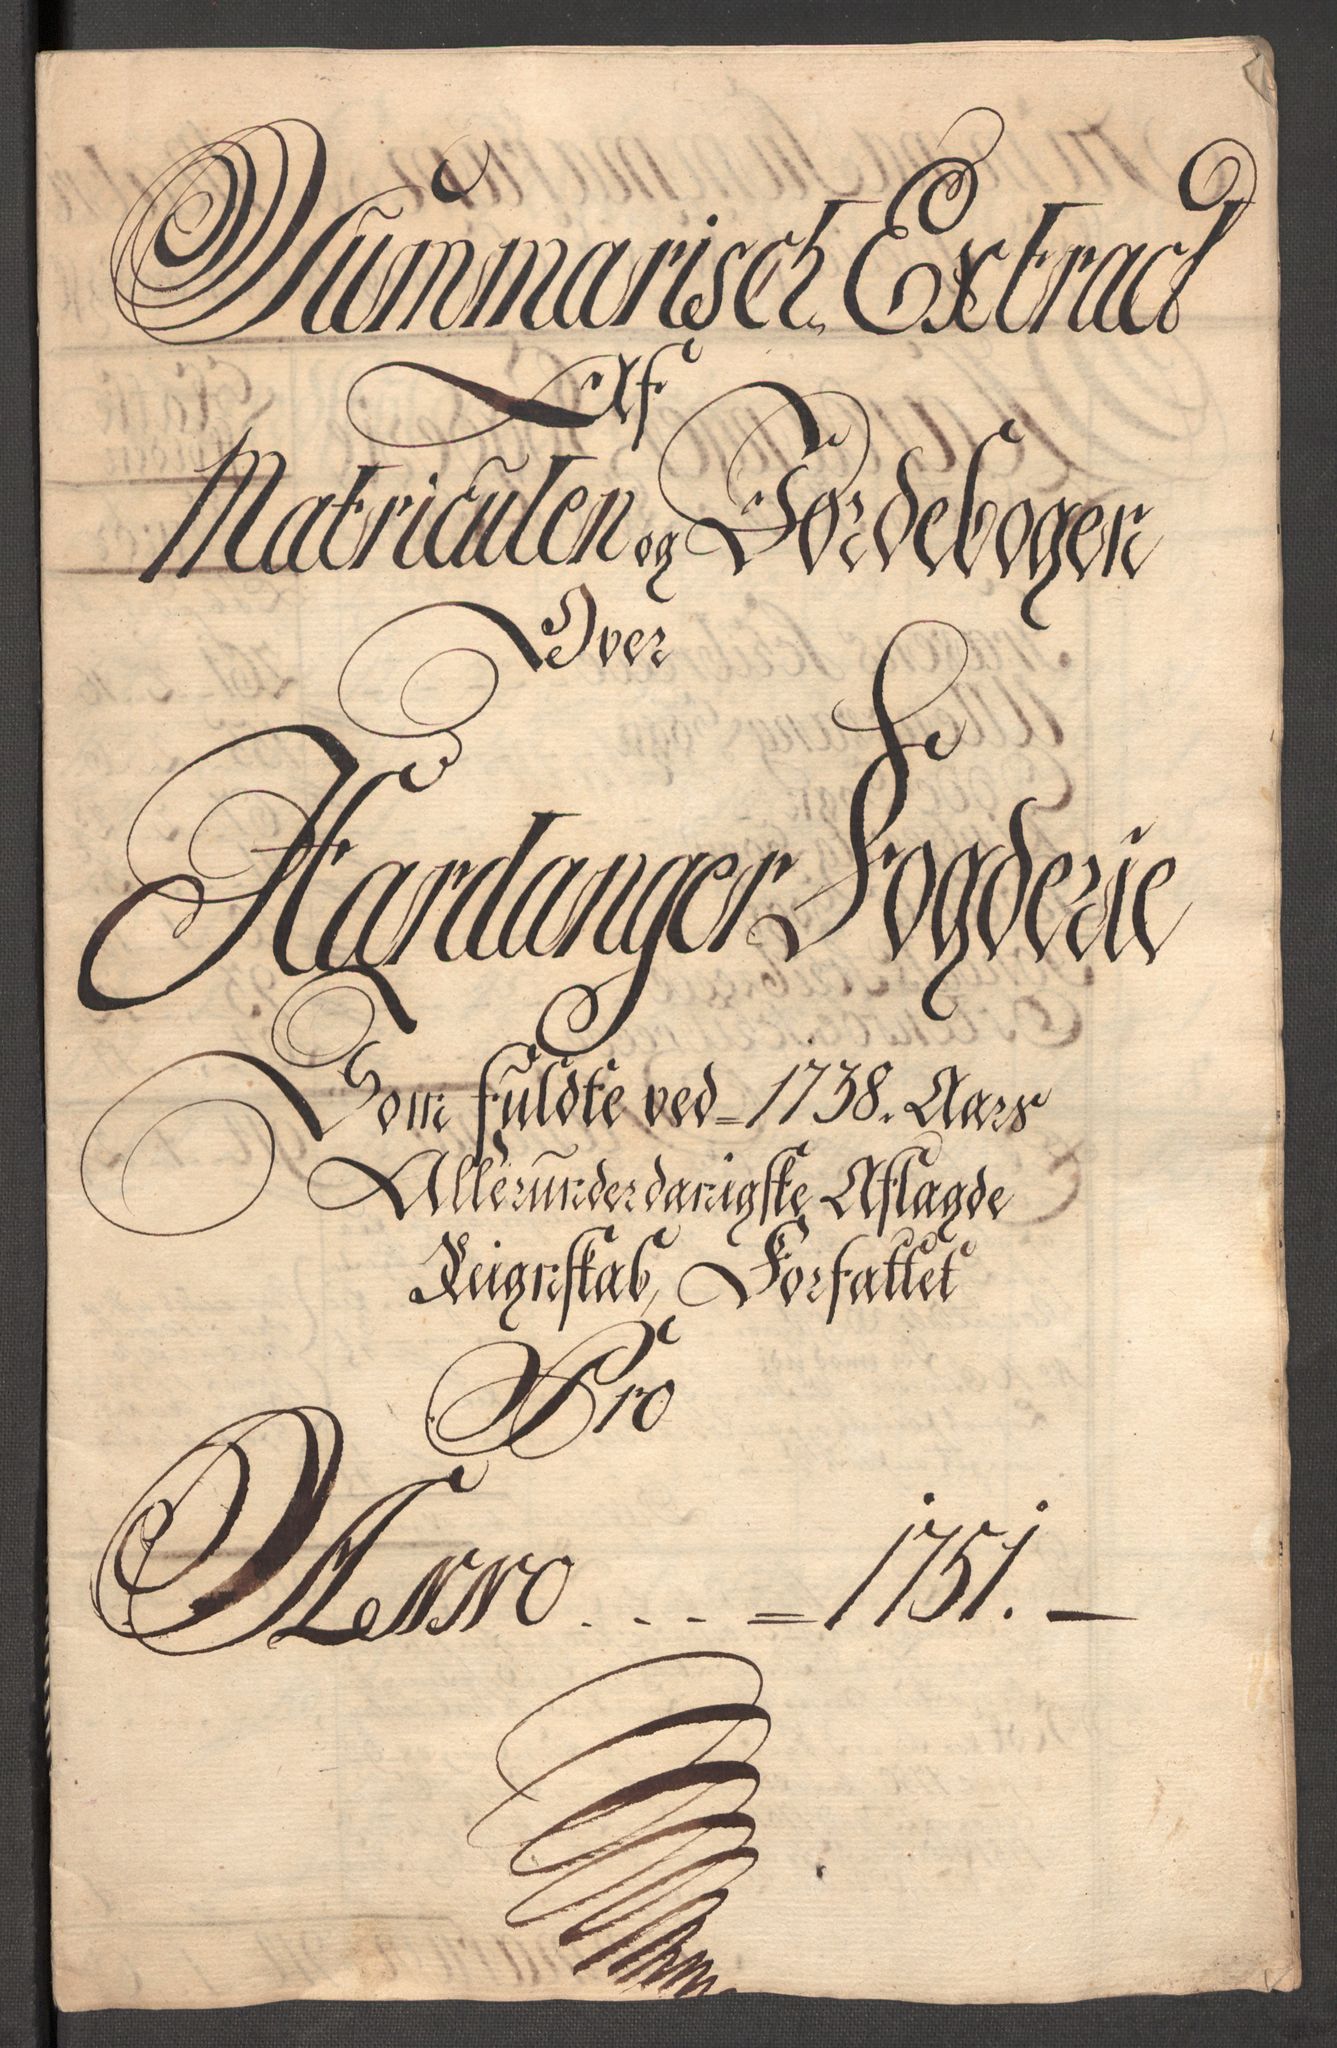 Summarisch Extract
Af
Matriculen og Jordebogen
Over
Hardanger Fogderie
Som fuldte ved 1738. Aars
Allerunderdanigste Aflagde
Reignskab, Forfattet
Pro
Anno . . . . = 1751. —